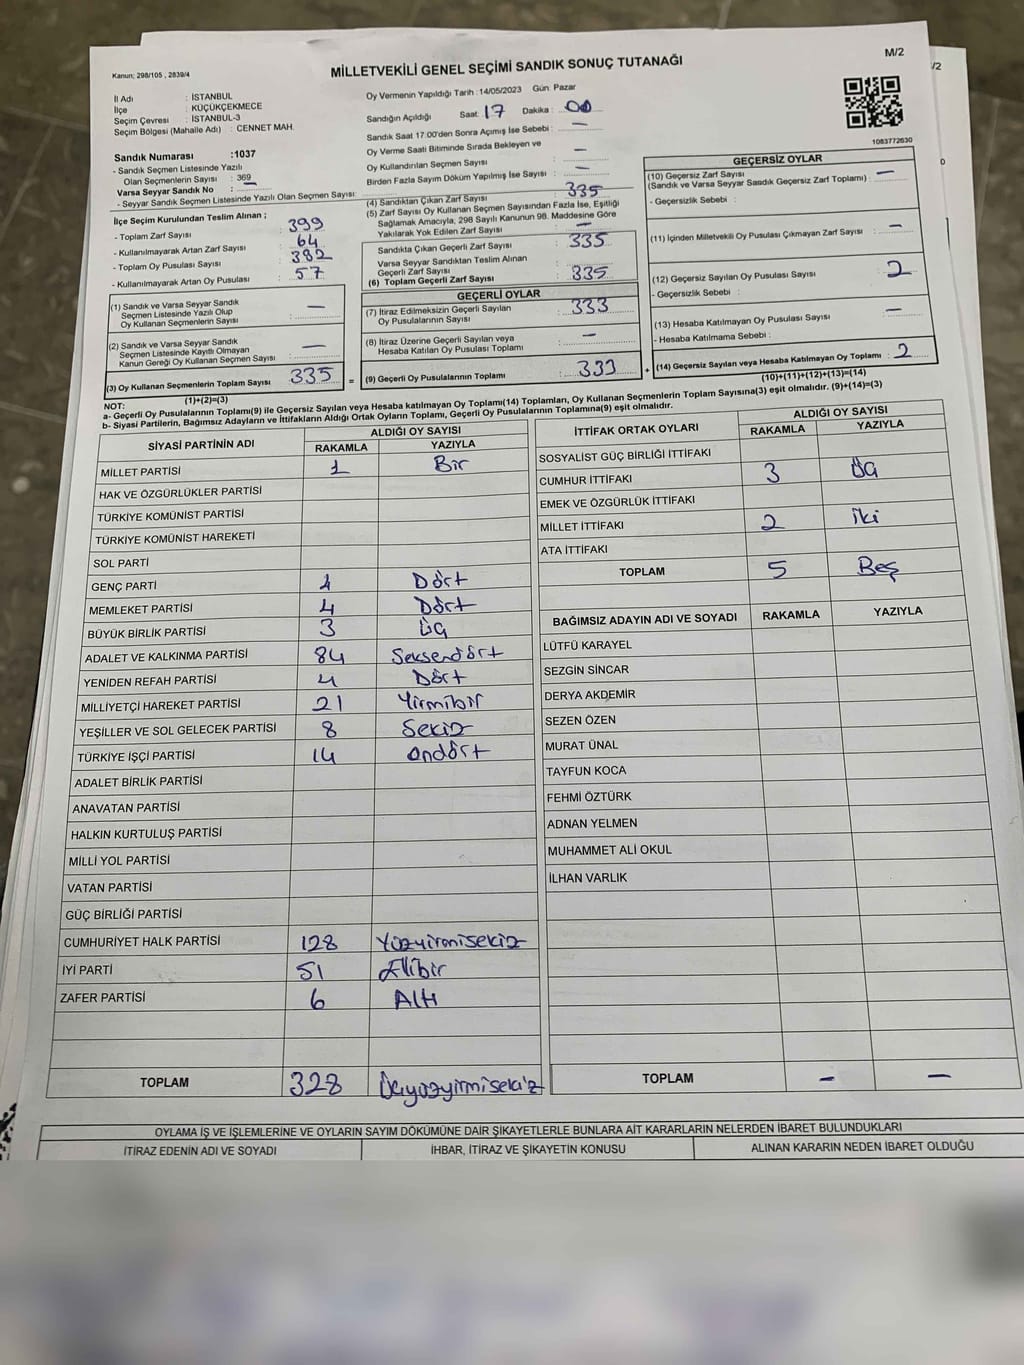 M/2
/2
Kanun; 298/105 , 2839/4
MİLLETVEKİLİ GENEL SEÇİMİ SANDIK SONUÇ TUTANAĞI
İl Adı : İSTANBUL
İlçe : KÜÇÜKÇEKMECE
Seçim Çevresi : İSTANBUL-3
Seçim Bölgesi (Mahalle Adı) : CENNET MAH.
Sandık Numarası :1037
- Sandık Seçmen Listesinde Yazılı
Olan Seçmenlerin Sayısı : 369
Varsa Seyyar Sandık No : —
- Seyyar Sandık Seçmen Listesinde Yazılı Olan Seçmen Sayısı:
İlçe Seçim Kurulundan Teslim Alınan ;
- Toplam Zarf Sayısı : 399
- Kullanılmayarak Artan Zarf Sayısı : 64
- Toplam Oy Pusulası Sayısı : 382
- Kullanılmayarak Artan Oy Pusulası : 57
(1) Sandık ve Varsa Seyyar Sandık
Seçmen Listesinde Yazılı Olup
Oy Kullanan Seçmenlerin Sayısı : —
(2) Sandık ve Varsa Seyyar Sandık
Seçmen Listesinde Kayıtlı Olmayan
Kanun Gereği Oy Kullanan Seçmen Sayısı : —
(3) Oy Kullanan Seçmenlerin Toplam Sayısı : 335
(1)+(2)=(3)
Oy Vermenin Yapıldığı Tarih : 14/05/2023 Gün: Pazar
Sandığın Açıldığı Saat: 17 Dakika : 00
Sandık Saat 17.00'den Sonra Açımış İse Sebebi : —
Oy Verme Saati Bitiminde Sırada Bekleyen ve
Oy Kullandırılan Seçmen Sayısı : —
Birden Fazla Sayım Döküm Yapılmış İse Sayısı : —
(4) Sandıktan Çıkan Zarf Sayısı : 335
(5) Zarf Sayısı Oy Kullanan Seçmen Sayısından Fazla İse, Eşitliği
Sağlamak Amacıyla, 298 Sayılı Kanunun 98. Maddesine Göre
Yakılarak Yok Edilen Zarf Sayısı : —
Sandıkta Çıkan Geçerli Zarf Sayısı : 335
Varsa Seyyar Sandıktan Teslim Alınan
Geçerli Zarf Sayısı :
(6) Toplam Geçerli Zarf Sayısı : 335
GEÇERLİ OYLAR
(7) İtiraz Edilmeksizin Geçerli Sayılan
Oy Pusulalarının Sayısı : 333
(8) İtiraz Üzerine Geçerli Sayılan veya
Hesaba Katılan Oy Pusulası Toplamı : —
= (9) Geçerli Oy Pusulalarının Toplamı : 333 +
1083772630
GEÇERSİZ OYLAR
(10) Geçersiz Zarf Sayısı : —
(Sandık ve Varsa Seyyar Sandık Geçersiz Zarf Toplamı)
- Geçersizlik Sebebi :
(11) İçinden Milletvekili Oy Pusulası Çıkmayan Zarf Sayısı : —
(12) Geçersiz Sayılan Oy Pusulası Sayısı : 2
- Geçersizlik Sebebi :
(13) Hesaba Katılmayan Oy Pusulası Sayısı : —
- Hesaba Katılmama Sebebi :
(14) Geçersiz Sayılan veya Hesaba Katılmayan Oy Toplamı : 2
(10)+(11)+(12)+(13)=(14)
NOT:
a- Geçerli Oy Pusulalarının Toplamı(9) ile Geçersiz Sayılan veya Hesaba katılmayan Oy Toplamı(14) Toplamları, Oy Kullanan Seçmenlerin Toplam Sayısına(3) eşit olmalıdır. (9)+(14)=(3)
b- Siyasi Partilerin, Bağımsız Adayların ve İttifakların Aldığı Ortak Oyların Toplamı, Geçerli Oy Pusulalarının Toplamına(9) eşit olmalıdır.
SİYASİ PARTİNİN ADI ALDIĞI OY SAYISI
RAKAMLA YAZIYLA
MİLLET PARTİSİ 1 Bir
HAK VE ÖZGÜRLÜKLER PARTİSİ
TÜRKİYE KOMÜNİST PARTİSİ
TÜRKİYE KOMÜNİST HAREKETİ
SOL PARTİ
GENÇ PARTİ 4 Dört
MEMLEKET PARTİSİ 4 Dört
BÜYÜK BİRLİK PARTİSİ 3 Üç
ADALET VE KALKINMA PARTİSİ 84 Seksendört
YENİDEN REFAH PARTİSİ 4 Dört
MİLLİYETÇİ HAREKET PARTİSİ 21 Yirmibir
YEŞİLLER VE SOL GELECEK PARTİSİ 8 Sekiz
TÜRKİYE İŞÇİ PARTİSİ 14 Ondört
ADALET BİRLİK PARTİSİ
ANAVATAN PARTİSİ
HALKIN KURTULUŞ PARTİSİ
MİLLİ YOL PARTİSİ
VATAN PARTİSİ
GÜÇ BİRLİĞİ PARTİSİ
CUMHURİYET HALK PARTİSİ 128 Yüzyirmisekiz
İYİ PARTİ 51 Ellibir
ZAFER PARTİSİ 6 Altı
TOPLAM 328 Üçyüzyirmisekiz
İTTİFAK ORTAK OYLARI ALDIĞI OY SAYISI
RAKAMLA YAZIYLA
SOSYALİST GÜÇ BİRLİĞİ İTTİFAKI
CUMHUR İTTİFAKI 3 Üç
EMEK VE ÖZGÜRLÜK İTTİFAKI
MİLLET İTTİFAKI 2 İki
ATA İTTİFAKI
TOPLAM 5 Beş
BAĞIMSIZ ADAYIN ADI VE SOYADI RAKAMLA YAZIYLA
LÜTFÜ KARAYEL
SEZGİN SİNCAR
DERYA AKDEMİR
SEZEN ÖZEN
MURAT ÜNAL
TAYFUN KOCA
FEHMİ ÖZTÜRK
ADNAN YELMEN
MUHAMMET ALİ OKUL
İLHAN VARLIK
TOPLAM — —
OYLAMA İŞ VE İŞLEMLERİNE VE OYLARIN SAYIM DÖKÜMÜNE DAİR ŞİKAYETLERLE BUNLARA AİT KARARLARIN NELERDEN İBARET BULUNDUKLARI
İTİRAZ EDENİN ADI VE SOYADI İHBAR, İTİRAZ VE ŞİKAYETİN KONUSU ALINAN KARARIN NEDEN İBARET OLDUĞU